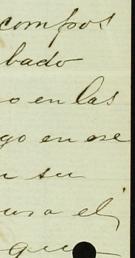 compos
bado
o en las
go en ese
su
a el
que